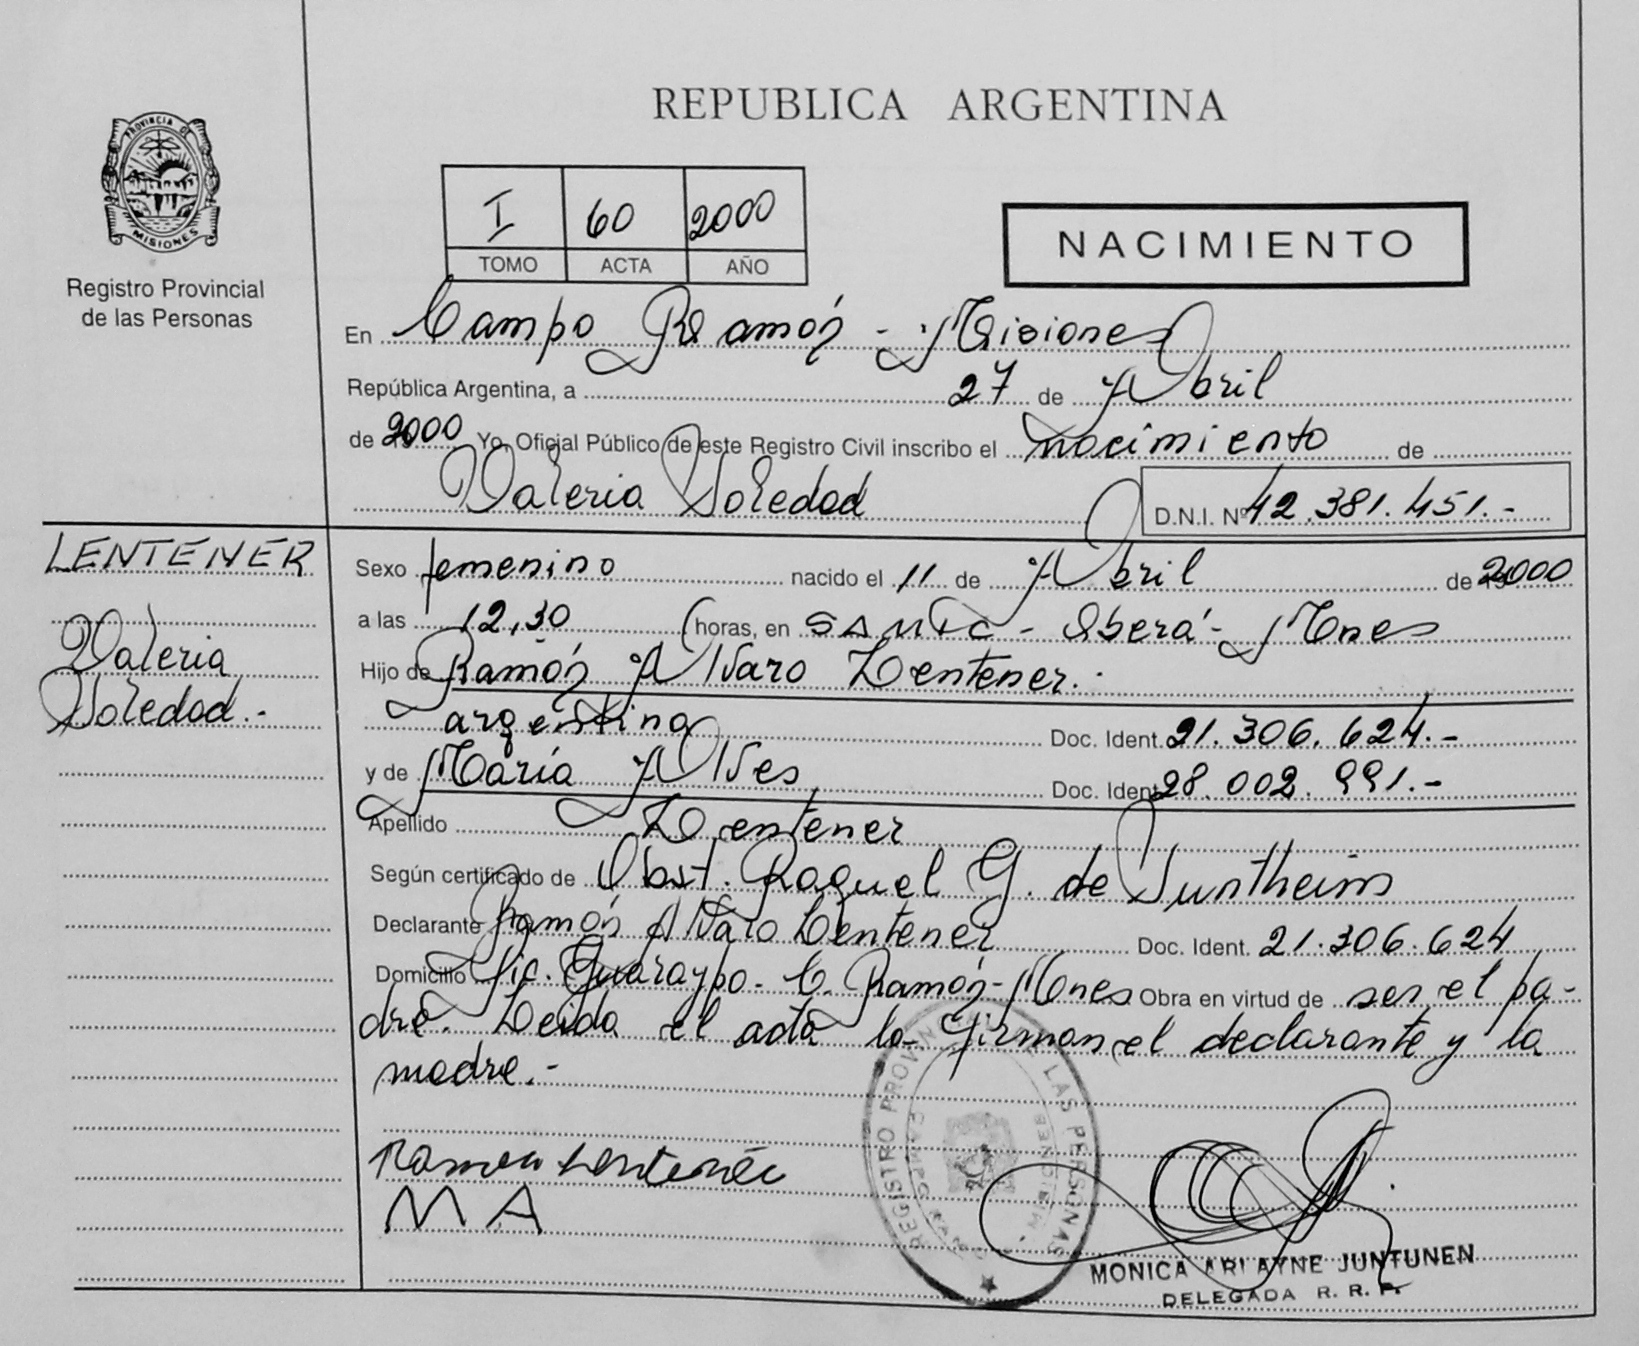 REPUBLICA ARGENTINA
PROVINCIA DE
MISIONES
Registro Provincial
de las Personas
I 60 2000
TOMO ACTA AÑO
NACIMIENTO
En Campo Ramón - Misiones
República Argentina, a 27 de Abril
de 2000 Yo, Oficial Público de este Registro Civil inscribo el nacimiento de
Valeria Soledad D.N.I. Nº 42.381.451.-
LENTENER
Valeria
Soledad.-
Sexo femenino nacido el 11 de Abril de 2000
a las 12,30 horas, en SAMIC - Oberá - Mnes
Hijo de Ramón Alvaro Lentener.-
argentino Doc. Ident. 21.306.624.-
y de María Alves Doc. Ident. 28.002.991.-
Apellido Lentener
Según certificado de Obst. Raquel G. de Suntheim
Declarante Ramón Alvaro Lentener Doc. Ident. 21.306.624
Domicilio Pic. Guaraypo - C. Ramón - Mnes Obra en virtud de ser el pa-
dre. Leida el acta la firman el declarante y la
madre.-
Ramon Lentener
M A
REGISTRO PROVINCIAL LAS PERSONAS
CAMPO RAMON - MISIONES
MONICA ARLAYNE JUNTUNEN
DELEGADA R. R. P.